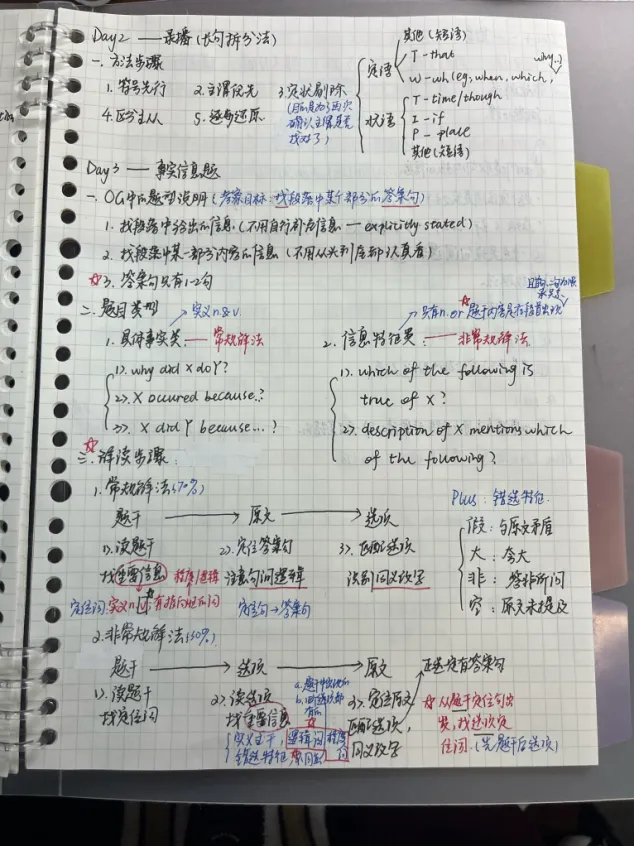 Day2 — 录播 (长句拆分法)
一. 方法步骤
1. 符号先行 2. 主谓优先 3. 定状剔除
(目的是为了再次确认主谓是否找对了)
4. 区分主从 5. 逐步还原
定语
其他(短语)
T-that
w-wh(eg; when, which, why..)
状语
T-time/though
I-if
P-place
其他(短语)
Day3 — 事实信息题
一. OG中的题型说明 (考察目标: 找段落中某个部分的答案句)
1. 找段落中给出的信息 (不用自行补充信息 — explicitly stated)
2. 找段落中某一部分内容的信息 (不用从头到尾都认真看)
☆3. 答案句只有1-2句
二. 题目类型
实义n.&v.
1. 具体事实类: —— 常规解法
1). why did X do Y?
2). X occured because..?
3). X did Y because...?
只有n. or 题干内容是在段首出现
2. 信息特征类: —— 非常规解法
1). which of the following is
true of X?
2). description of X mentions which
of the following?
☆
三. 解读步骤:
1. 常规解法 (70%)
题干 → 原文 → 选项
1). 读题干 2). 定位答案句 3). 匹配选项
找重要信息 程度/逻辑 注意句间逻辑 识别同义改写
定位词: 实义n. 有指向性的词 定位句→答案句
Plus: 错选特征
假: 与原文矛盾
大: 夸大
非: 答非所问
空: 原文未提及
2. 非常规解法 (30%)
题干 → 选项 → 原文 正选一定有答案句
1). 读题干 2). 读选项 3). 定位原文
找定位词 找重要信息 匹配选项,
a. 题干出现的
b. 四选项都有的
实义主干, 逻辑词 程度词 同义改写
错选特征
☆ 从题干定位句出
发, 找选项定
位词. (先题干后选项)